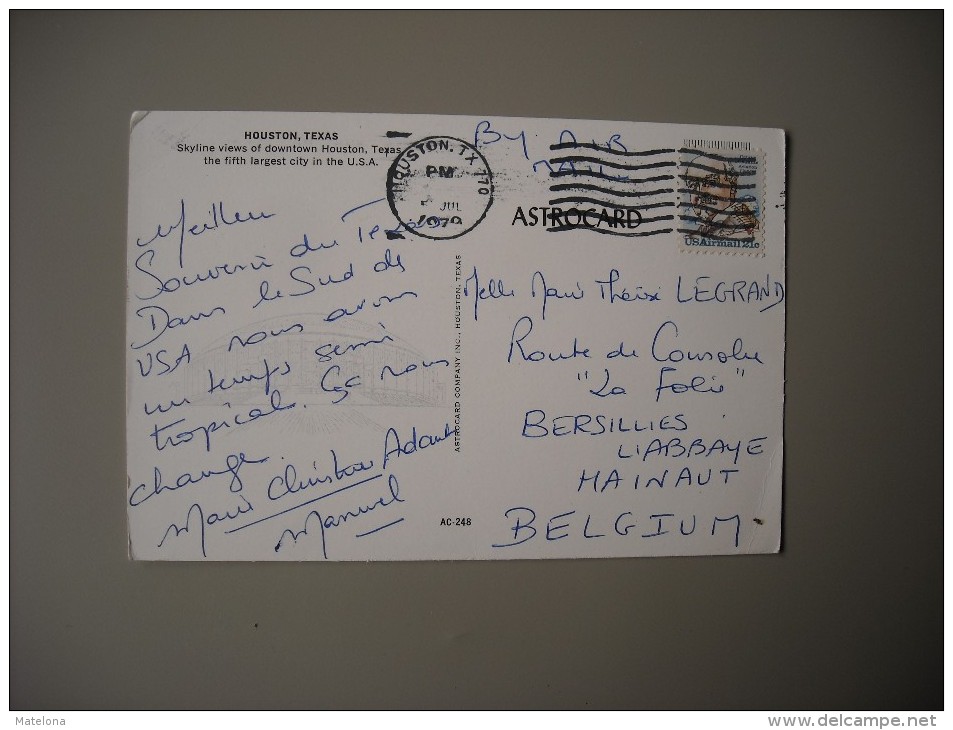 HOUSTON, TEXAS
Skyline views of downtown Houston, Texas
the fifth largest city in the U.S.A.
HOUSTON, TX 770
PM
JUL
1979
BY AIR
MAIL
ASTROCARD
USAirmail 21c
Meilleur
Souvenir du Texas
Dans le Sud des
USA nous avons
un temps semi
tropical. Ça nous
change.
Marie Christine
Manuel
ASTROCARD COMPANY INC., HOUSTON, TEXAS
AC-248
Melle Marie Thérèse LEGRAND
Route de
"La Folie"
BERSILLIES
L'ABBAYE
HAINAUT
BELGIUM
Matelona
www.delcampe.net